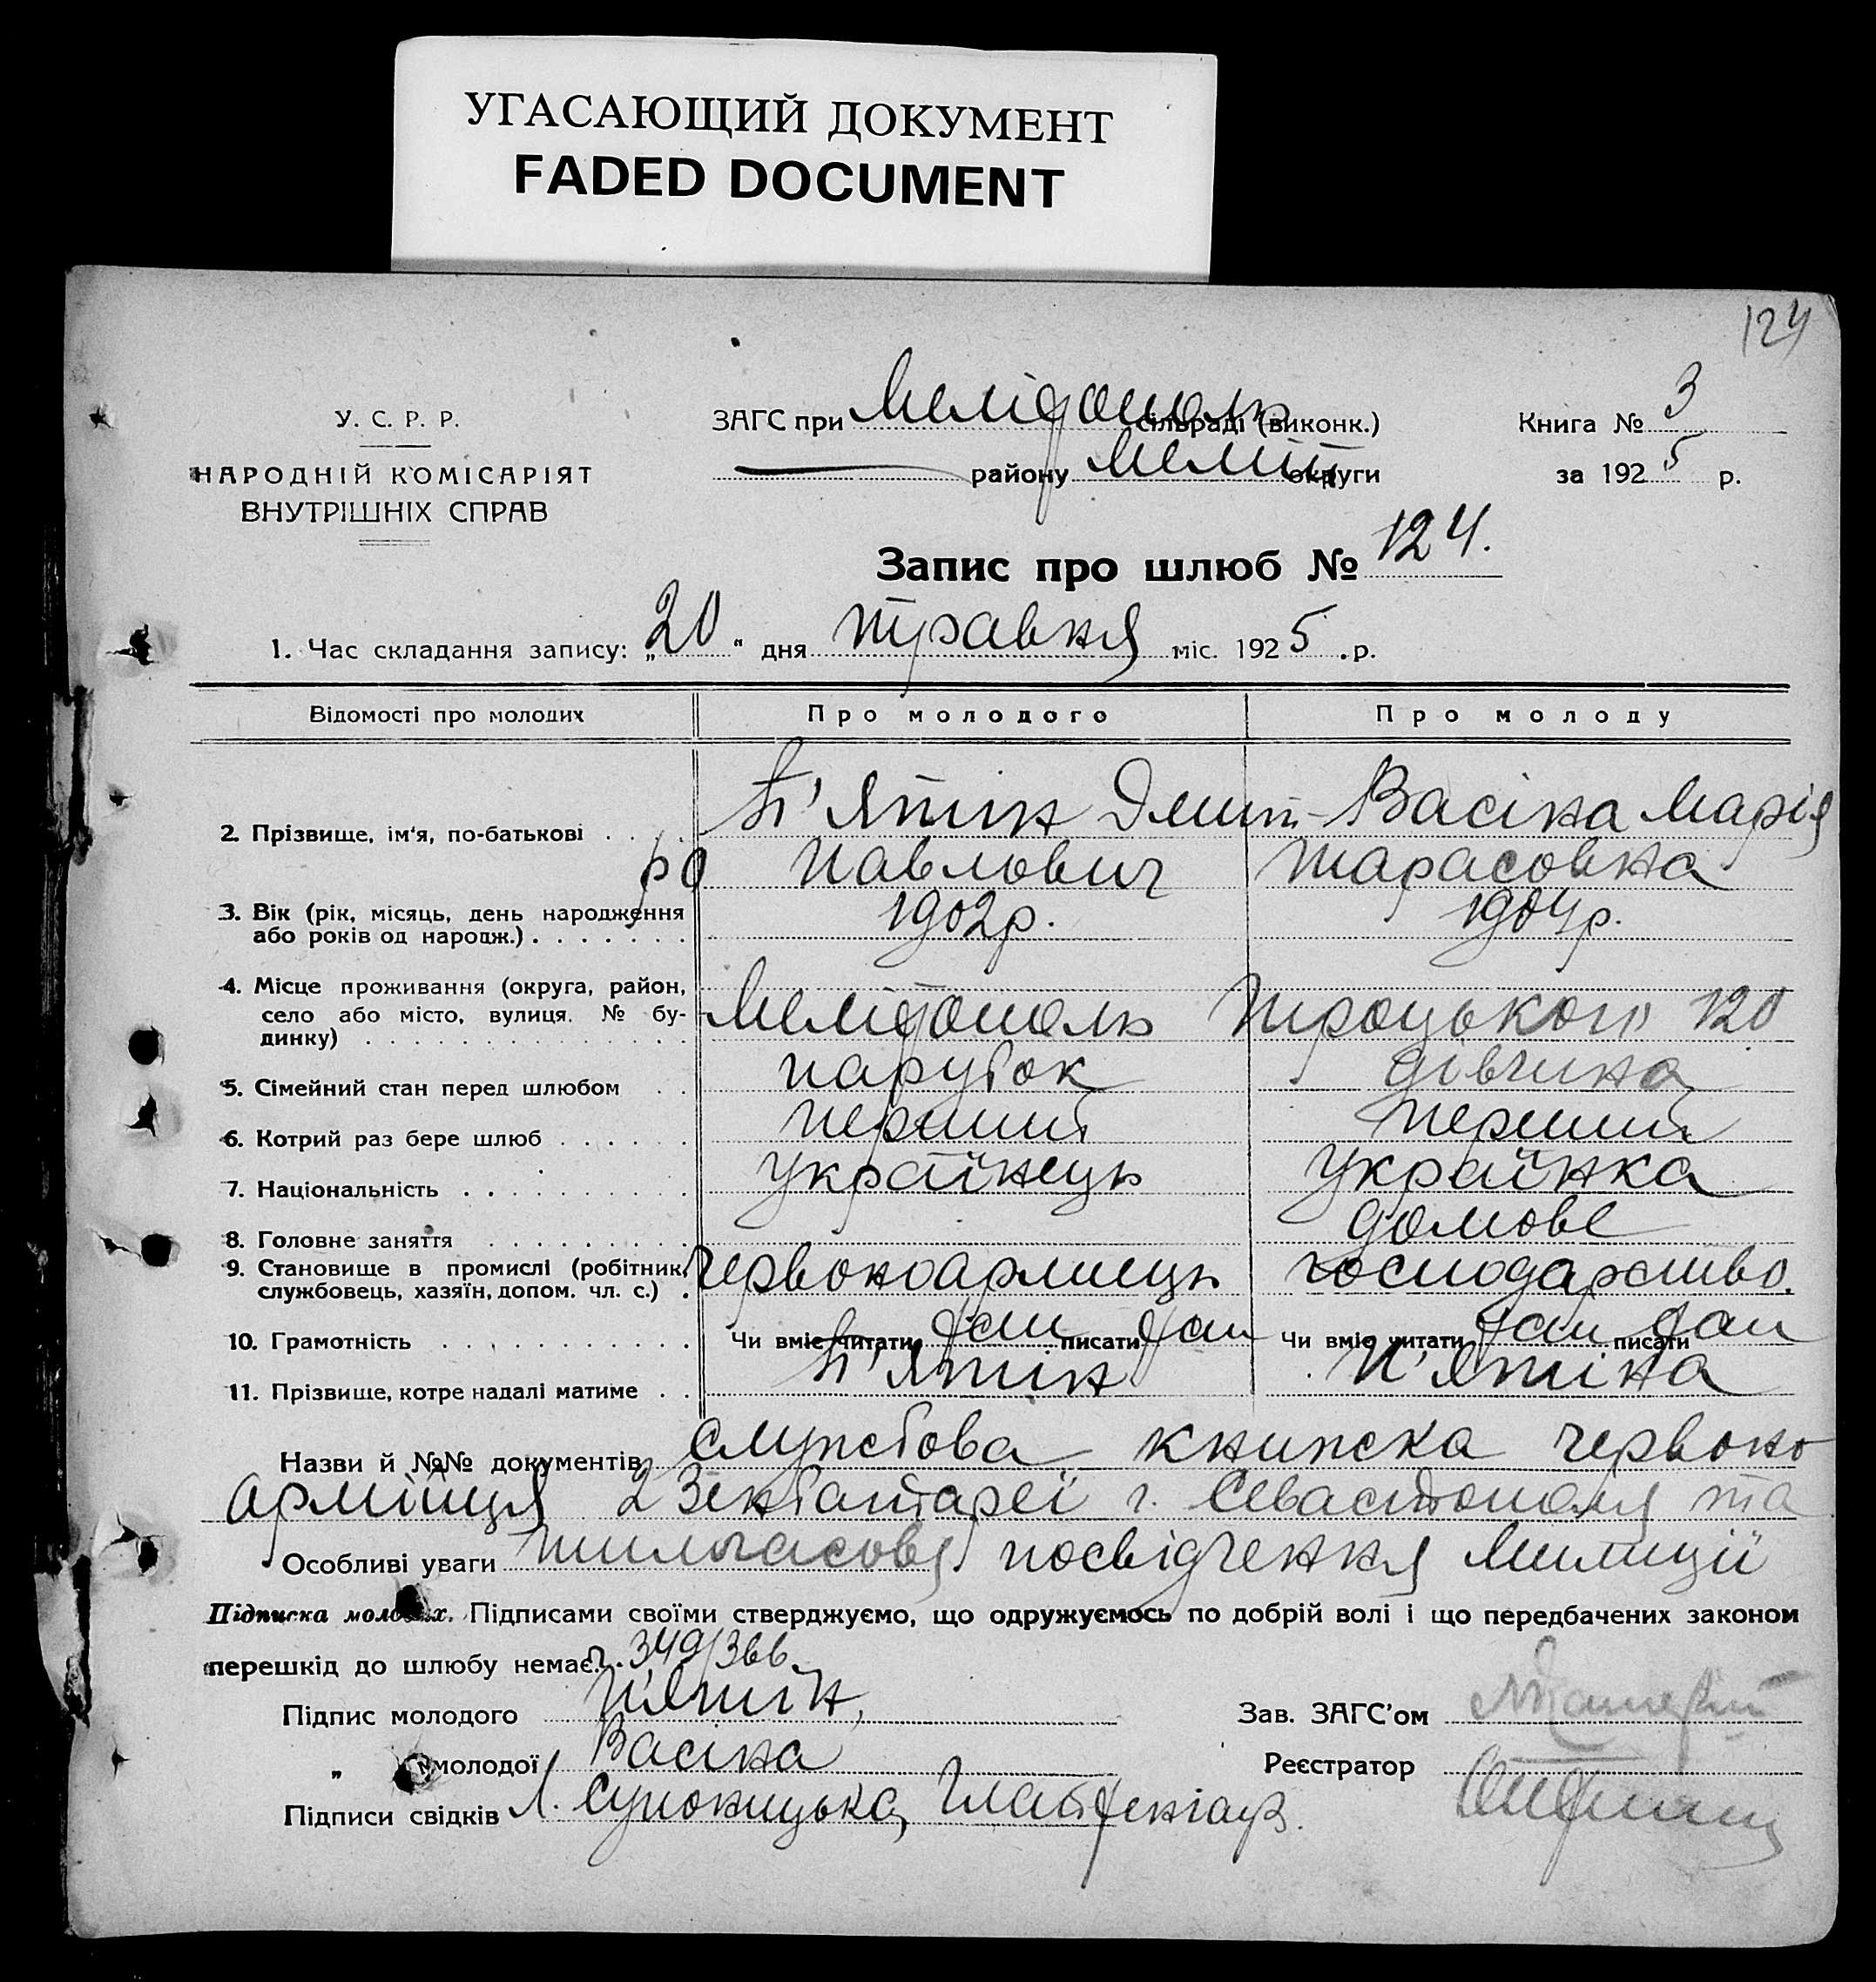 УГАСАЮЩИЙ ДОКУМЕНТ
FADED DOCUMENT
124
У. С. Р. Р.
НАРОДНІЙ КОМІСАРІЯТ
ВНУТРІШНІХ СПРАВ
ЗАГС при Мелітополь сільраді (виконк.)
району Меліт округи
Книга № 3
за 1925 р.
Запис про шлюб № 124.
1. Час складання запису: „20" дня травня міс. 1925.р.
Відомості про молодих Про молодого Про молоду
2. Прізвище, ім'я, по-батькові П'ятін Дмит- Васіна Марія
ро Павлович Тарасовна
3. Вік (рік, місяць, день народження або років од народж.) 1902р. 1904р.
4. Місце проживання (округа, район, село або місто, вулиця. № будинку) Мелітополь Троцького 120
5. Сімейний стан перед шлюбом парубок дівчина
6. Котрий раз бере шлюб перший перший
7. Національність українець українка
8. Головне заняття домове
9. Становище в промислі (робітник, службовець, хазяїн, допом. чл. с.) червоноармиець господарство.
10. Грамотність Чи вміє читати так писати так Чи вміє читати так писати так
11. Прізвище, котре надалі матиме П'ятін П'ятіна
Назви й №№ документів службова книжка червоно
армійця 2 Зенбатареї г. Севастополя та
Особливі уваги тимчасове посвідчення Милиції
Підписка молодих. Підписами своїми стверджуємо, що одружуємось по добрій волі і що передбачених законом
перешкід до шлюбу немає. 349/366
Підпис молодого П'ятін,
Зав. ЗАГС'ом
„ молодої Васіна
Реєстратор
Підписи свідків Л.